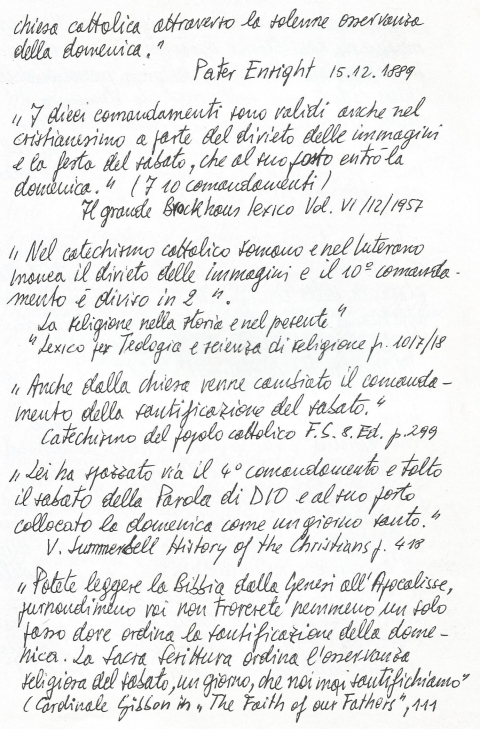 chiesa cattolica attraverso la solenne osservanza
della domenica."
Pater Enright 15.12.1889
„I dieci comandamenti sono validi anche nel
cristianesimo a parte del divieto delle immagini
e la festa del sabato, che al suo posto entrò la
domenica." (I 10 comandamenti)
Il grande Brockhaus lexico Vol. VI/12/1957
„Nel catechismo cattolico romano e nel luterano
manca il divieto delle immagini e il 10º comanda-
mento é diviso in 2".
La religione nella storia e nel presente"
"Lexico per Teologia e scienza di religione p. 10/7/18
„Anche dalla chiesa venne cambiato il comanda-
mento della santificazione del sabato."
Catechismo del popolo cattolico F.S. 8. Ed. p. 299
„Lei ha spazzato via il 4º comandamento e tolto
il sabato della Parola di DIO e al suo posto
collocato la domenica come un giorno santo."
V. Summerbell History of the Christians p. 418
„Potete leggere la Bibbia dalla Genesi all'Apocalisse,
purnondimeno voi non troverete nemmeno un solo
passo dove ordina la santificazione della dome-
nica. La Sacra Scrittura ordina l'osservanza
religiosa del sabato, un giorno, che noi mai santifichiamo"
(Cardinale Gibbon in „The Faith of our Fathers", 111